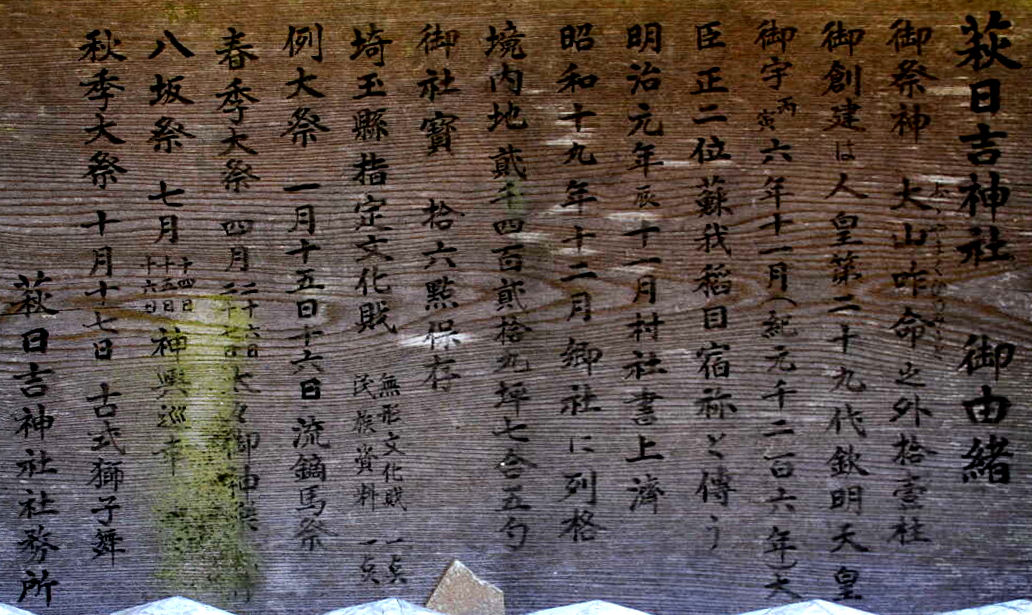 萩日吉神社 御由緒
御祭神 大山咋命之外拾壹柱
御創建は人皇第二十九代欽明天皇
御宇丙寅六年十一月(紀元千二百六年)大
臣正二位蘇我稲目宿祢と傳う
明治元年辰十一月村社書上濟
昭和十九年十二月郷社に列格
境内地貳千四百貳拾九坪七合五勺
御社寳 拾六點保存
埼玉縣指定文化財 無形文化財 一点
民族資料 一点
例大祭 一月十五日十六日流鏑馬祭
春季大祭 四月二十六日二十七日太々御神楽
八坂祭 七月十四日十五日十六日神輿巡幸
秋季大祭 十月十七日 古式獅子舞
萩日吉神社社務所